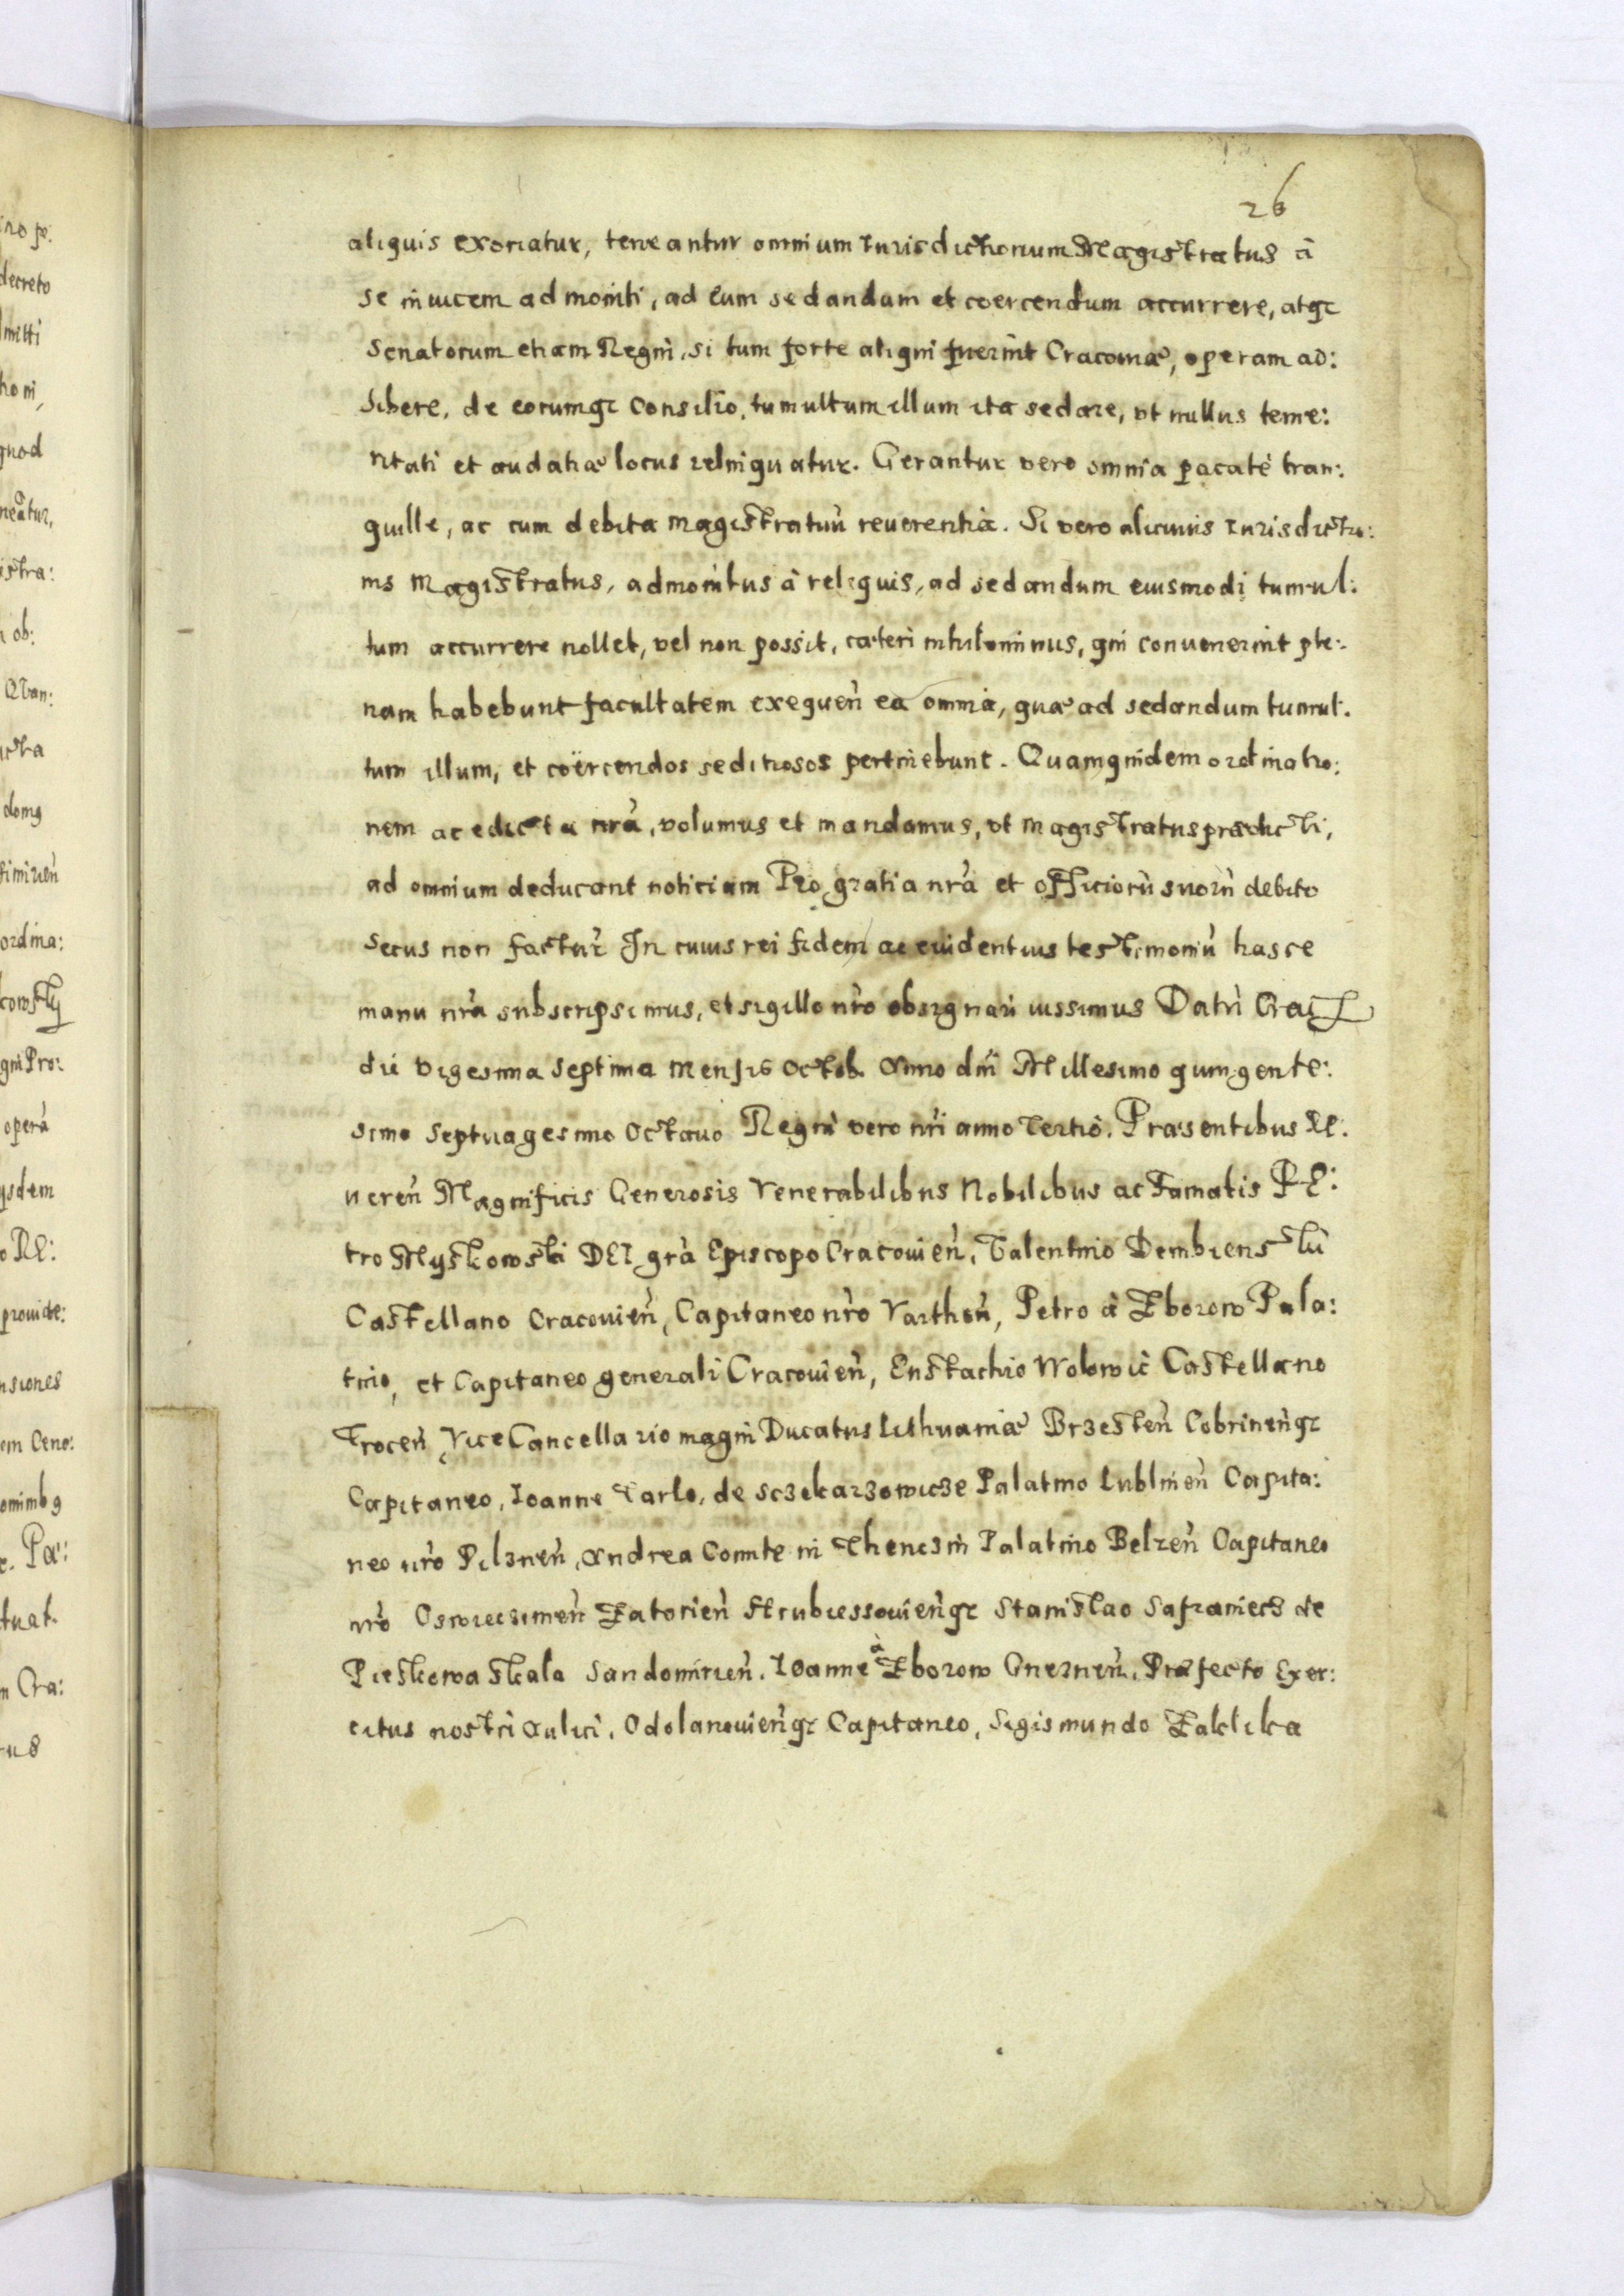 26
aliquis exoriatur, teneantur omnium Iurisdictionum Magistratus à
se inuicem admoniti, ad eum sedandum et coercendum accurrere, atq3
Senatorum etiam Regni, si tum forte aliqui fuerint Cracouiæ, operam ad:
hibere, de eorumq3 Consilio, tumultum illum ita sedare, vt nullus teme:
ritati et audatiæ locus relinquatur. Gerantur vero omnia pacatè tran:
quille, ac cum debita magistratuũ reuerentia. Si vero alicuius Iurisdictio:
nis Magistratus, admonitus à reliquis, ad sedandum eiusmodi tumul:
tum accurrere nollet, vel non possit, cæteri nihilominus, qui conuenerint ple:
nam habebunt facultatem exequeñ ea omnia, quæ ad sedandum tumul:
tum illum, et coërcendos seditiosos pertinebunt. Quamquidem ordinatio:
nem ac edicta nrã, volumus et mandamus, vt magistratus prædicti,
ad omnium deducant noticiam Pro gratia nrã et officiorũ suorũ debito
Secus non factur̃ In cuius rei fidem ac euidentius testimoniũ hasce
manu nrã subscripsimus, et sigillo nrõ obsignari iussimus Datũ Crac
die vigesima septima mensis Octob. Anno dñi Millesimo quingente:
simo septuagesimo Octauo Regni vero nri anno Tertio. Præsentibus Re:
uereñ Magnificis Generosis Venerabilibus Nobilibus ac Famatis PE:
tro Myskowski DEI grã Episcopo Cracouieñ, Valentino Dembienski
Castellano Cracouieñ, Capitaneo nrõ Wartheñ, Petro à Zborow Pala:
tino, et Capitaneo generali Cracouieñ, Eustachio Wolowic Castellano
Troceñ Vice Cancellario magni Ducatus Lithuaniæ Brzesteñ Cobrineñq3
Capitaneo, Ioanne Tarlo, de Sczekarzowicze Palatino Lublineñ Capita:
neo nrõ Pilzneñ, Andrea Comite in Thenczin Palatino Belzeñ Capitaneo
nrõ Oswiecimeñ Zatorieñ Hrubiessouieñq3 Stanislao Safraniecz de
Pieskowa Skala Sandomirieñ. Ioanne à Zborow Gnezneñ. Præfecto Exer:
citus nostri Aulici, Odolanouieñq3 Capitaneo, Sigismundo Zaklika